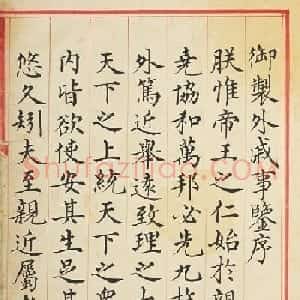 御製外戚事鑒序
朕惟帝王之仁始於親
堯協和萬邦必先九族
外篤近舉遠致理之
天下之上統天下之衆
内皆欲使安其生足其
悠久矧夫至親近屬